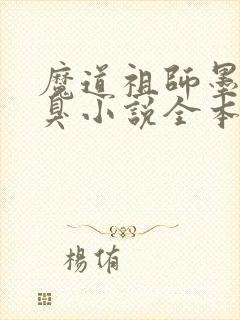 魔道祖師墨
臭小說全本
楊侑